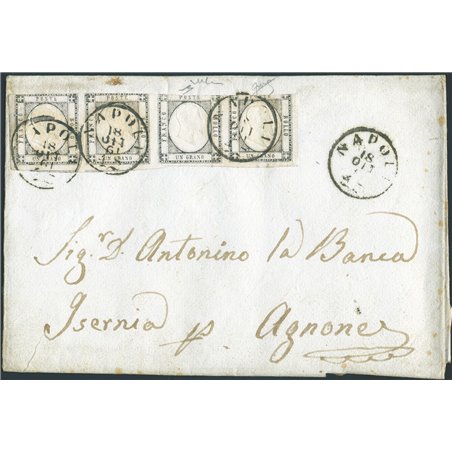 POSTE
UN GRANO
UN GRANO
FRANCO POSTE BOLLO
UN GRANO
BOLLO
UN GRANO
NAPOLI
18
NAPOLI
18
61
NAPOLI
18
Sig.r D. Antonino la Banca
Isernia p Agnone